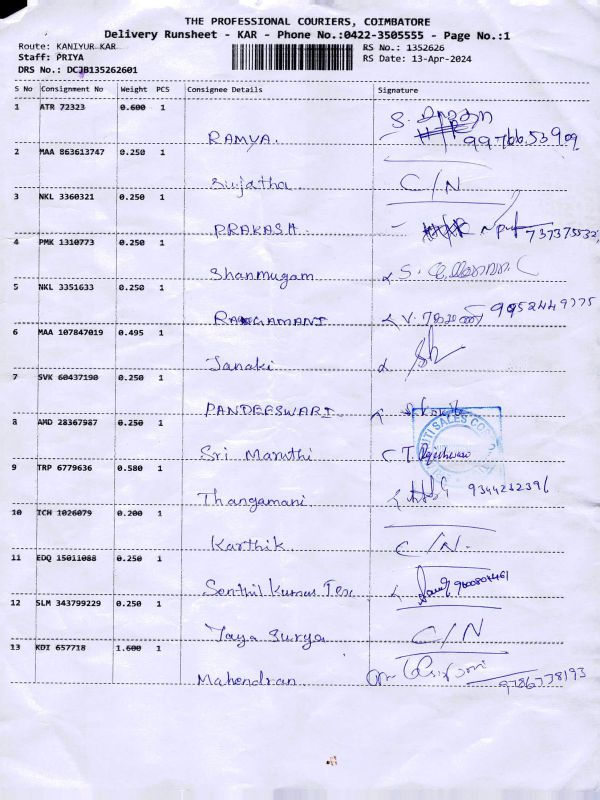 THE PROFESSIONAL COURIERS, COIMBATORE
Delivery Runsheet - KAR - Phone No.:0422-3505555 - Page No.:1
Route: KANIYUR KAR RS No.: 1352626
Staff: PRIYA RS Date: 13-Apr-2024
DRS No.: DCJB135262601
S No Consignment No Weight PCS Consignee Details Signature
1 ATR 72323 0.600 1
RAMYA. 9976653909
2 MAA 863613747 0.250 1
Sujatha C/N
3 NKL 3360321 0.250 1
PRAKASH.
4 PMK 1310773 0.250 1
Shanmugam
5 NKL 3351633 0.250 1
RANGAMANI
6 MAA 107847019 0.495 1
Janaki
7 SVK 60437190 0.250 1
PANDEESWARI
8 AMD 28367987 0.250 1
Sri Maruthi
9 TRP 6779636 0.580 1
Thangamani 9344232396
10 ICH 1026079 0.200 1
Karthik C/N.
11 EDQ 15011088 0.250 1
Senthil Kumar Tex
12 SLM 343799229 0.250 1
Jaya Surya C/N
13 KDI 657718 1.600 1
Mahendran 9786778193